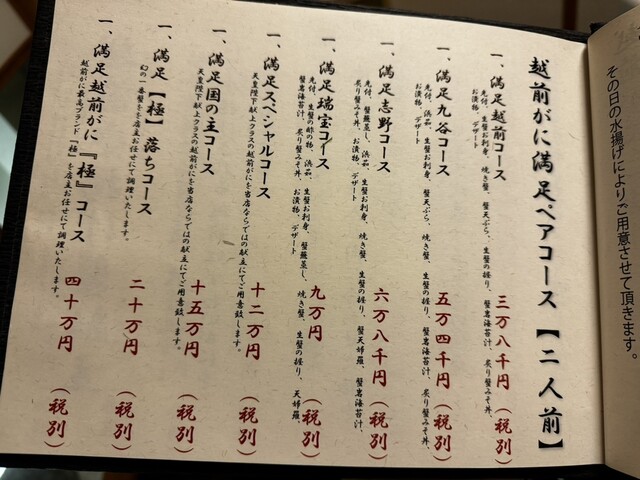 その日の水揚げによりご用意させて頂きます。
越前がに満足ペアコース【二人前】
一、満足越前コース 三万八千円（税別）
先付、生蟹お刺身、焼き蟹、蟹天ぷら、生蟹の握り、蟹岩海苔汁、炙り蟹みそ丼、
お漬物、デザート
一、満足九谷コース 五万四千円（税別）
先付、浜茹、生蟹お刺身、蟹天ぷら、焼き蟹、生蟹の握り、蟹岩海苔汁、炙り蟹みそ丼、
お漬物、デザート
一、満足志野コース 六万八千円（税別）
先付、蟹蕪蒸し、浜茹、生蟹お刺身、焼き蟹、生蟹の握り、蟹天婦羅、蟹岩海苔汁、
炙り蟹みそ丼、お漬物、デザート
一、満足瑞宝コース 九万円（税別）
先付、生蟹の酢の物、浜茹、生蟹お刺身、蟹蕪蒸し、焼き蟹、生蟹の握り、天婦羅、
蟹岩海苔汁、炙り蟹みそ丼、お漬物、デザート
一、満足スペシャルコース 十二万円（税別）
天皇陛下献上クラスの越前がにを当店ならではの献立にてご用意致します。
一、満足国の主コース 十五万円（税別）
天皇陛下献上クラスの越前がにを当店ならではの献立にてご用意致します。
一、満足【極】落ちコース 二十万円（税別）
幻の一番蟹を店主お任せにて調理いたします。
一、満足越前がに『極』コース 四十万円（税別）
越前がに最高ブランド「極」を店主お任せにて調理いたします。